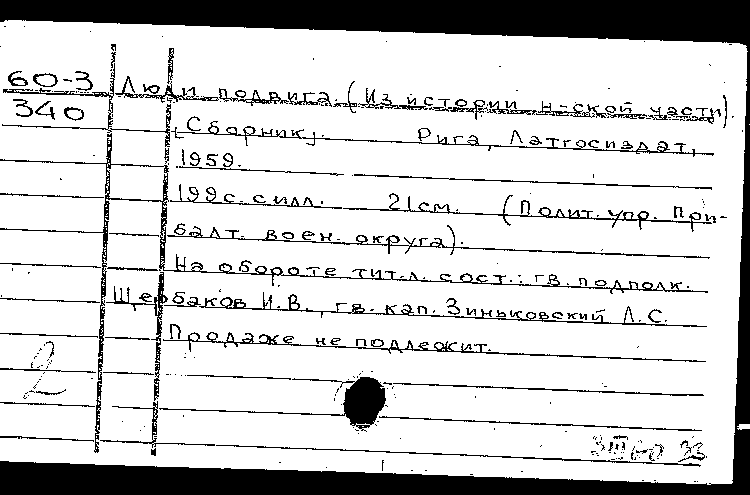 60-3 Люди подвига. (Из истории н-ской части).
340 [Сборник]. Рига, Латгосиздат,
1959.
199с. с илл. 21см. (Полит. упр. При-
балт. воен. округа).
На обороте тит.л. сост.: гв. подполк.
Щербаков И.В., гв. кап. Зиньковский Л.С.
Продаже не подлежит.
2
3 III 60 33